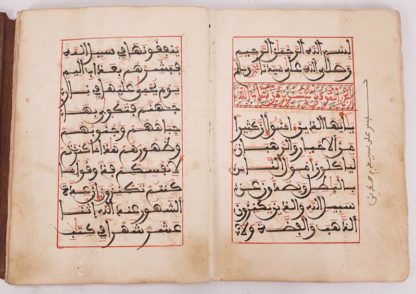 بسم الله الرحمن الرحيم
وصلى الله على سيدنا وسلم
يأيها الذين ءامنوا إن كثيرا
من الأحبار والرهبان
لياكلون أموال الناس
بالبطل ويصدون عن
سبيل الله والذين يكنزون
الذهب والفضة ولا
ينفقونها في سبيل الله
فبشرهم بعذاب اليم
يوم يحمى عليها في نار
جهنم فتكوى بها
جباههم وجنوبهم
وظهورهم هذا ما كنزتم
لأنفسكم فذوقوا ما
كنتم تكنزون إن عدة
الشهور عند الله اثنا
عشر شهرا في كتب